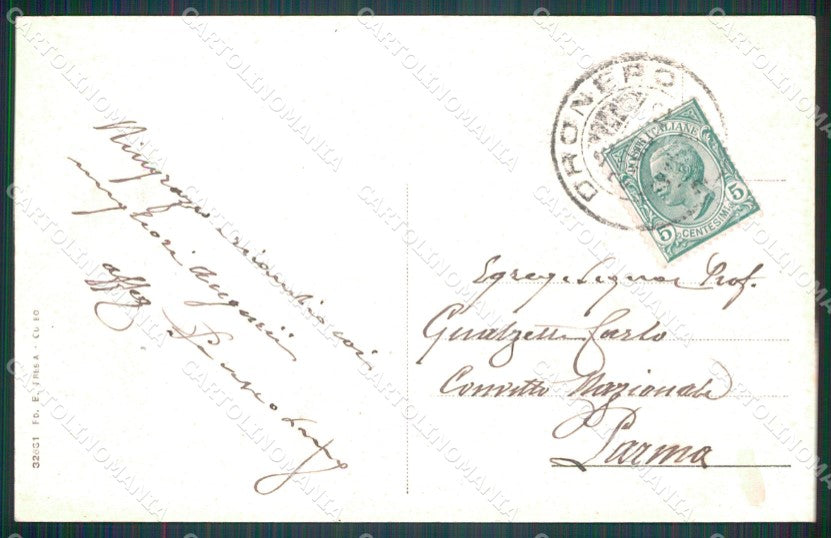 Ringrazio e ricambio coi
migliori auguri
affez
32661 Ed. E. FRESIA - CUNEO
DRONERO
POSTE ITALIANE
5 CENTESIMI 5
Egreg. Signor Prof.
Gualzetti Carlo
Convitto Nazionale
Parma
CARTOLINOMANIA